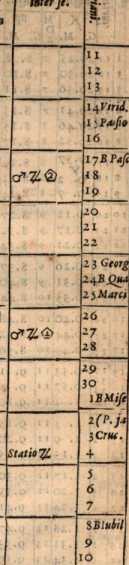 inter se.
11
12
13
14 Virid.
15 Passio
16
17 B Pasc
♂ ♃ 18
19
20
21
22
23 Georg
24 B Qua
25 Marci
26
♂ ♃ 27
28
29
30
1 B Mise
2 (P. Ja
3 Cruc.
Statio ♃ 4
5
6
7
8 B Iubil
9
10